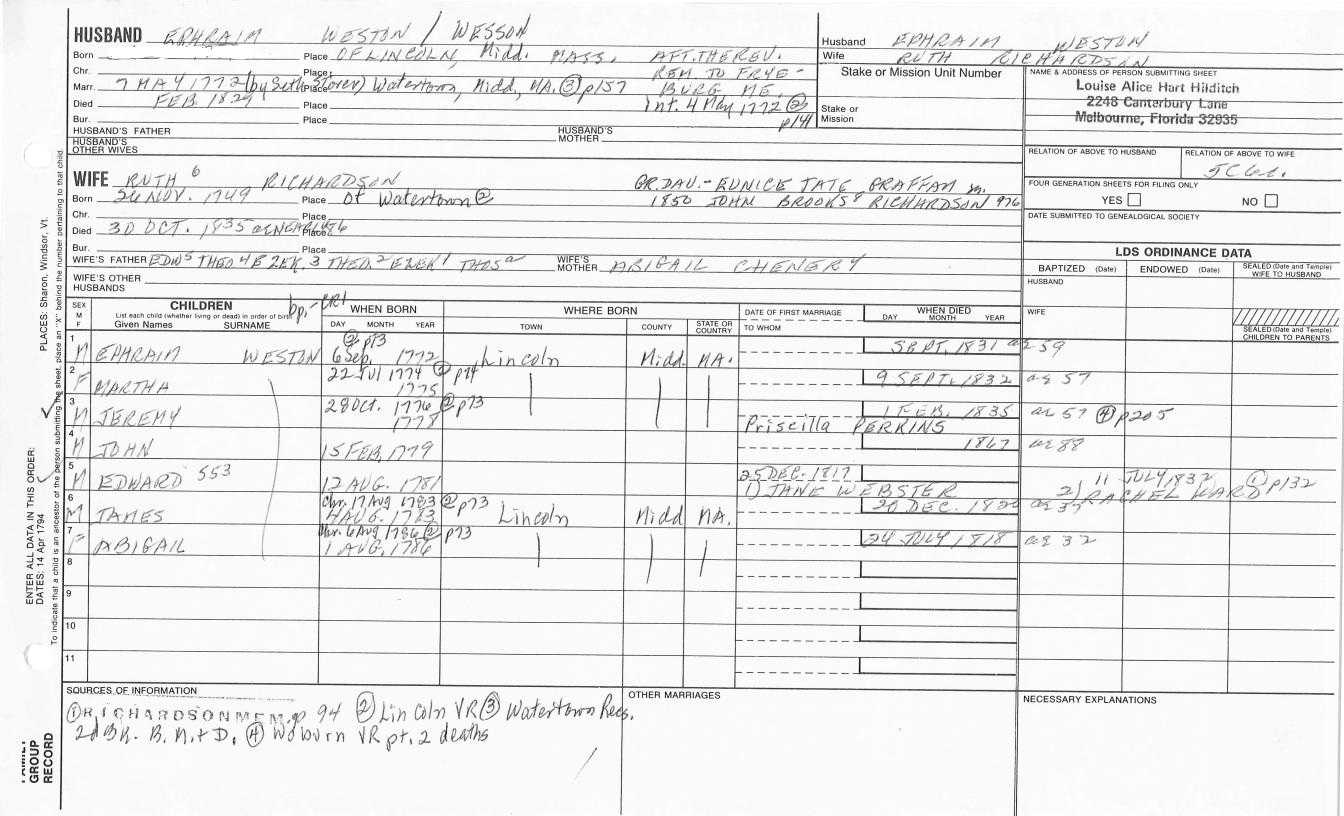 HUSBAND EPHRAIM WESTON / WESSON
Born Place OF LINCOLN, Midd. MASS. AFT. THE REV.
Chr. Place REM TO FRYE-
Marr. 7 MAY 1772 (by Seth Storer) Watertown, Midd, MA. ③ p157 BURG ME.
Died FEB. 1827 Place Int. 4 May 1772 ②
Bur. Place p141
HUSBAND'S FATHER HUSBAND'S MOTHER
HUSBAND'S OTHER WIVES
Husband EPHRAIM WESTON
Wife RUTH RICHARDSON
Stake or Mission Unit Number
Stake or Mission
NAME & ADDRESS OF PERSON SUBMITTING SHEET
Louise Alice Hart Hilditch
2248 Canterbury Lane
Melbourne, Florida 32935
RELATION OF ABOVE TO HUSBAND RELATION OF ABOVE TO WIFE
5C6r.
FOUR GENERATION SHEETS FOR FILING ONLY
YES NO
DATE SUBMITTED TO GENEALOGICAL SOCIETY
WIFE RUTH 6 RICHARDSON GR. DAU.- EUNICE TATE GRAFFAM m.
Born 26 NOV. 1749 Place Of Watertown ② 1850 JOHN BROOKS 8 RICHARDSON 976
Chr. Place
Died 30 OCT. 1835 Place 86
Bur. Place
WIFE'S FATHER EDW 5 THEO 4 EZEK. 3 THEO. 2 EZEK 1 THOS a WIFE'S MOTHER ABIGAIL CHENERY
WIFE'S OTHER HUSBANDS
LDS ORDINANCE DATA
BAPTIZED (Date) ENDOWED (Date) SEALED (Date and Temple) WIFE TO HUSBAND
HUSBAND
WIFE
SEALED (Date and Temple) CHILDREN TO PARENTS
SEX M F CHILDREN bp,-CR1 WHEN BORN WHERE BORN DATE OF FIRST MARRIAGE WHEN DIED
List each child (whether living or dead) in order of birth
Given Names SURNAME DAY MONTH YEAR TOWN COUNTY STATE OR COUNTRY TO WHOM DAY MONTH YEAR
② p73
1 M EPHRAIM WESTON 6 Sep. 1772 Lincoln Midd. MA. SEPT. 1831 ae 59
2 F MARTHA 22 Jul 1774 ② p74 1775 9 SEPT. 1832 ae 57
3 M JEREMY 28 Oct. 1776 ② p73 1778 1 FEB. 1835 ae 57 ④ p205
Priscilla PERKINS
4 M JOHN 15 FEB, 1779 1867 ae 88
5 M EDWARD 553 12 AUG. 1781 25 DEC. 1817 1) JANE WEBSTER 2) 11 JULY 1832 RACHEL WARD ① p132
6 M JAMES Chr. 17 Aug 1783 ② p73 4 AUG. 1783 Lincoln Midd MA. 20 DEC. 1820 ae 37
7 F ABIGAIL Chr. 6 Aug 1786 ② p73 1 AUG. 1786 24 JULY 1818 ae 32
8
9
10
11
SOURCES OF INFORMATION OTHER MARRIAGES NECESSARY EXPLANATIONS
① RICHARDSON MEM. p 94 ② Lincoln VR ③ Watertown Recs.
2d Bk. B. M. + D. ④ Woburn VR pt. 2 deaths
FAMILY GROUP RECORD
ENTER ALL DATA IN THIS ORDER:
DATES: 14 Apr 1794
PLACES: Sharon, Windsor, Vt.
To indicate that a child is an ancestor of the person submitting the sheet, place an "X" behind the number pertaining to that child.